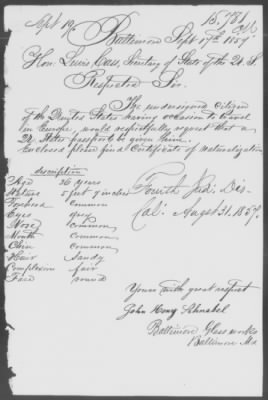 Sept 19
15,781
Baltimore Sept 17th 1857
Hon. Lewis Cass, Secretary of State of the U. S.
Respected Sir.
The undersigned citizen
of the United States having occasion to travel
in Europe, would respectfully request that a
U. States passport be given him.
Enclosed please find Certificate of Naturalization
description
Age 36 years
Stature 5 feet 7 inches
Forehead common
Eyes grey
Nose common
Mouth common
Chin common
Hair Sandy
Complexion fair
Face round
Fourth Jud. Dis.
Cal. August 31. 1857.
Yours with great respect
John Henry Schnabel
Baltimore Glass works
Baltimore Md